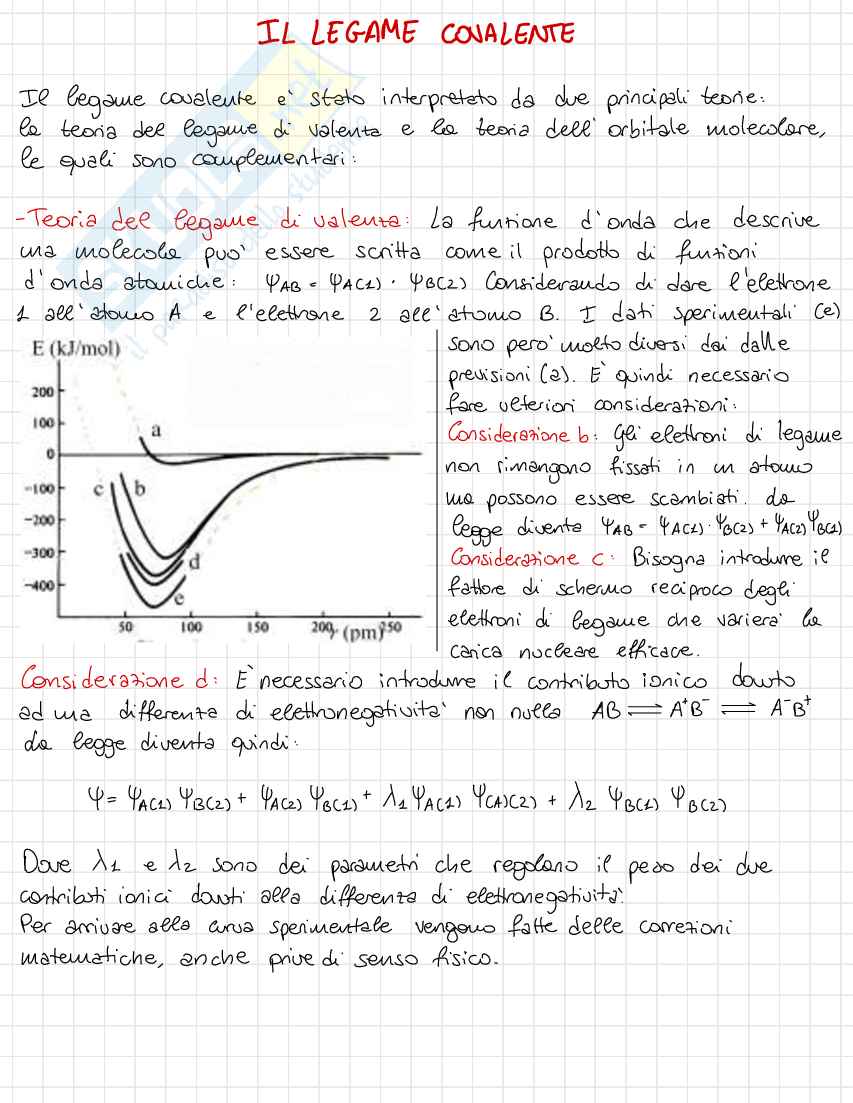 IL LEGAME COVALENTE
Il legame covalente e' stato interpretato da due principali teorie:
la teoria del legame di valenza e la teoria dell'orbitale molecolare,
le quali sono complementari:
-Teoria del legame di valenza: La funzione d'onda che descrive
una molecola puo' essere scritta come il prodotto di funzioni
d'onda atomiche: ψAB = ψA(1) · ψB(2) Considerando di dare l'elettrone
1 all'atomo A e l'elettrone 2 all'atomo B. I dati sperimentali (e)
sono pero' molto diversi dai dalle
previsioni (a). E' quindi necessario
fare ulteriori considerazioni:
Considerazione b: Gli elettroni di legame
non rimangono fissati in un atomo
ma possono essere scambiati. La
legge diventa ψAB = ψA(1)·ψB(2) + ψA(2)ψB(1)
Considerazione c: Bisogna introdurre il
fattore di schermo reciproco degli
elettroni di legame che variera' la
carica nucleare efficace.
E (kJ/mol)
200
100
0
-100
-200
-300
-400
a
c b
d
e
50 100 150 200 250
r (pm)
Considerazione d: E' necessario introdurre il contributo ionico dovuto
ad una differenza di elettronegativita' non nulla AB ⇌ A⁺B⁻ ⇌ A⁻B⁺
La legge diventa quindi:
ψ = ψA(1) ψB(2) + ψA(2) ψB(1) + λ1 ψA(1) ψ(A)(2) + λ2 ψB(1) ψB(2)
Dove λ1 e λ2 sono dei parametri che regolano il peso dei due
contributi ionici dovuti alla differenza di elettronegativita'.
Per arrivare alla curva sperimentale vengono fatte delle correzioni
matematiche, anche prive di senso fisico.